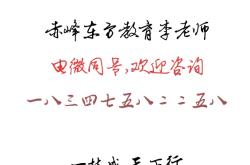 赤峰东方教育李老师
电微同号，欢迎咨询
一八三四七五八二二五八